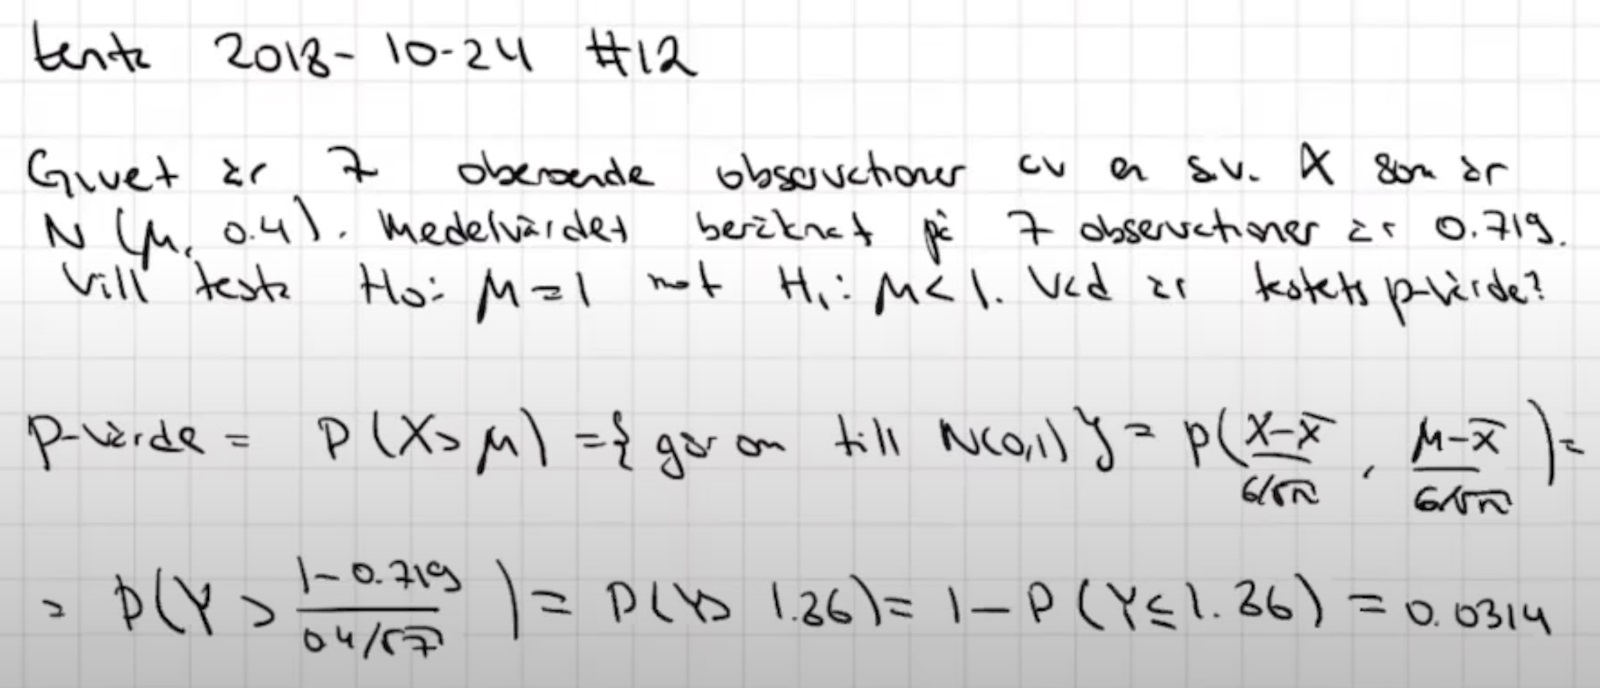 tenta 2018-10-24 #12
Givet är 7 oberoende observationer av en s.v. X som är
N(μ, 0.4). Medelvärdet beräknat på 7 observationer är 0.719.
Vill testa H₀: μ=1 mot H₁: μ<1. Vad är testets p-värde?
p-värde = P(X>μ) = {gör om till N(0,1)} = P((X-x̄)/(σ/√n), (μ-x̄)/(σ/√n)) =
= P(Y > (1-0.719)/(0.4/√7)) = P(Y> 1.86) = 1-P(Y≤1.86) = 0.0314